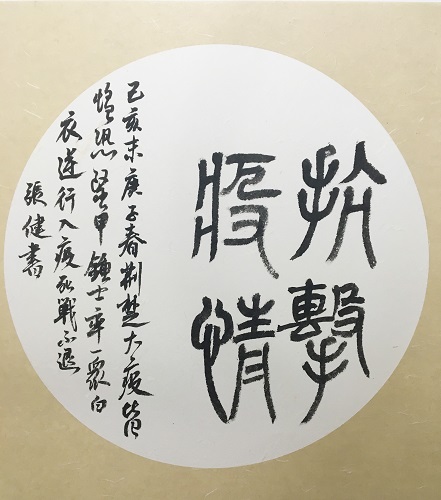 抗擊
疫情
己亥末庚子春荆楚大疫皆
惶恐甲鍾士率一眾白
衣逆行入疫死戰不退
張健書